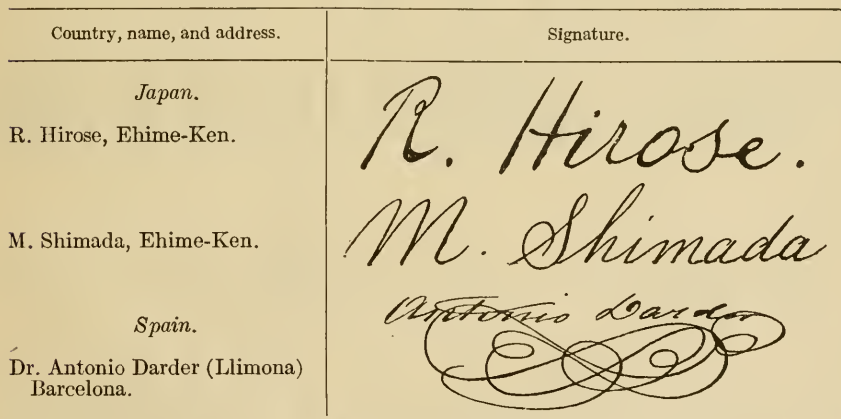 Country, name, and address.
Signature.
Japan.
R. Hirose, Ehime-Ken.
R. Hirose.
M. Shimada, Ehime-Ken.
M. Shimada
Spain.
Antonio Darder
Dr. Antonio Darder (Llimona)
Barcelona.